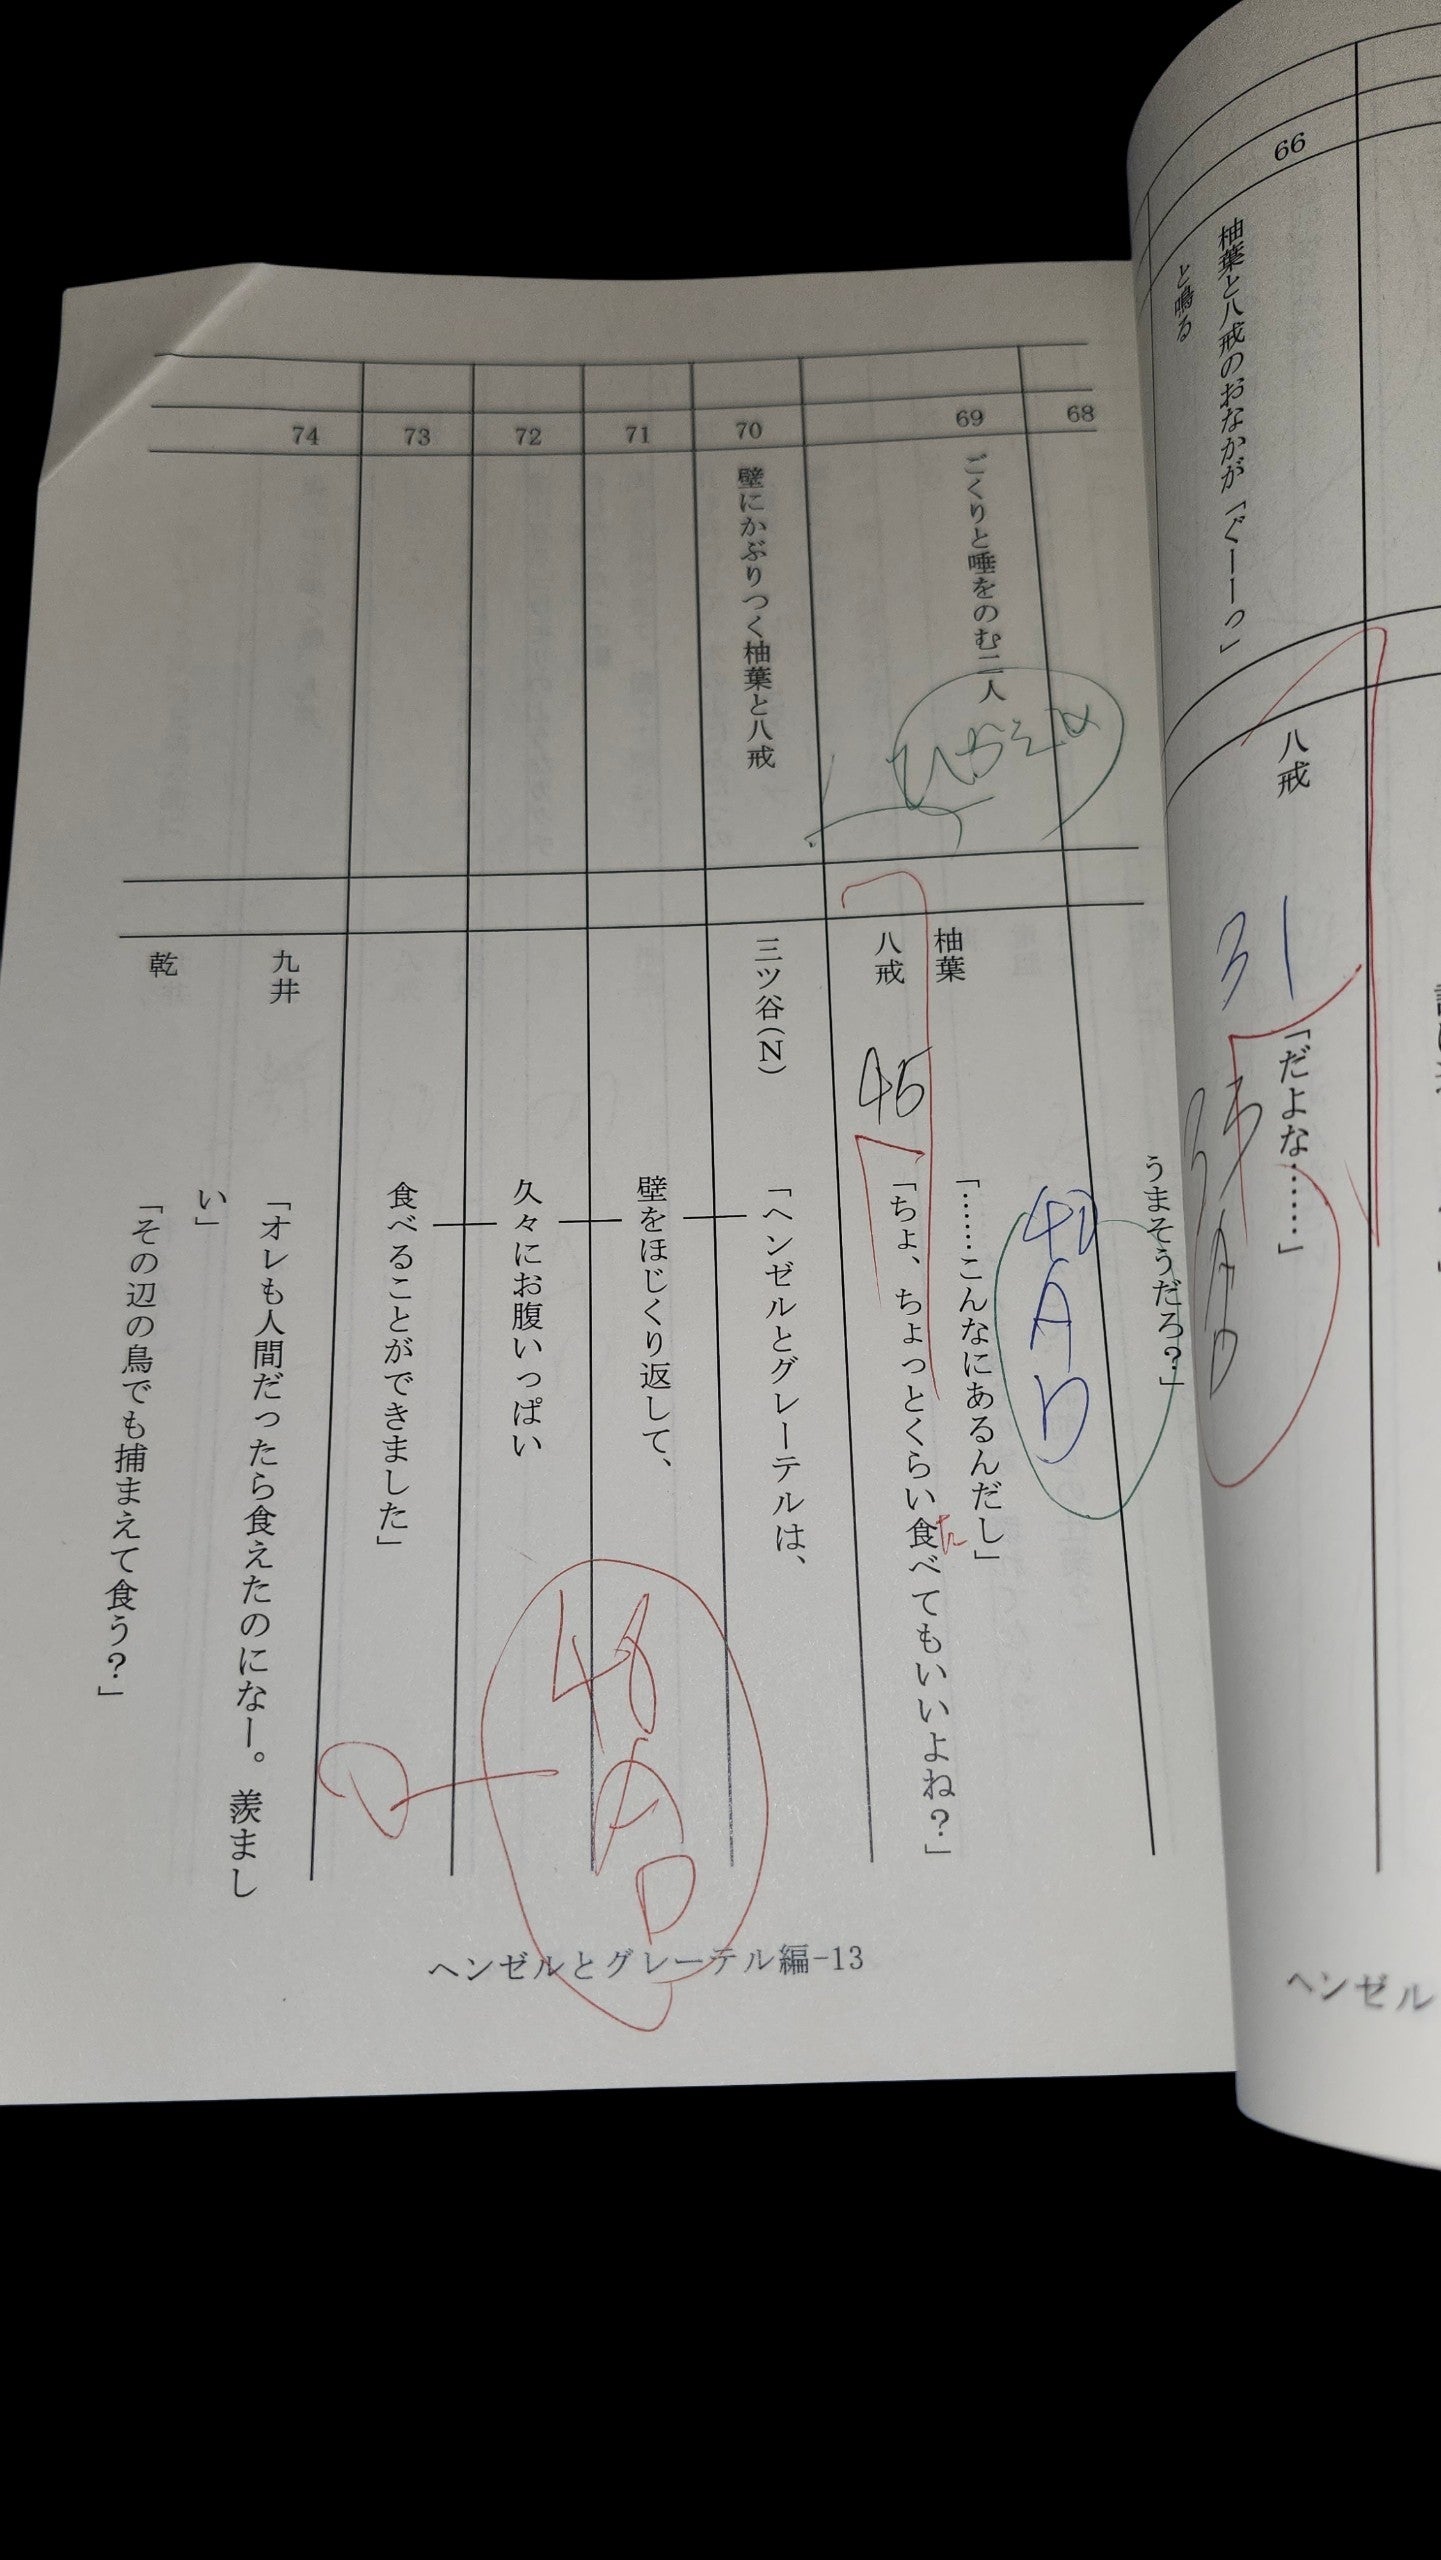 66
柚葉と八戒のおなかが「ぐーーっ」
と鳴る
八戒
31
「だよな……」
68
うまそうだろ？」
40
A
D
69
ごくりと唾をのむ二人
柚葉
「……こんなにあるんだし」
八戒
45
「ちょ、ちょっとくらい食べてもいいよね？」
た
70
壁にかぶりつく柚葉と八戒
三ツ谷(N)
「ヘンゼルとグレーテルは、
71
壁をほじくり返して、
72
久々にお腹いっぱい
73
食べることができました」
48
A
D
74
九井
「オレも人間だったら食えたのになー。羨まし
い」
乾
「その辺の鳥でも捕まえて食う？」
ヘンゼルとグレーテル編-13
ヘンゼル